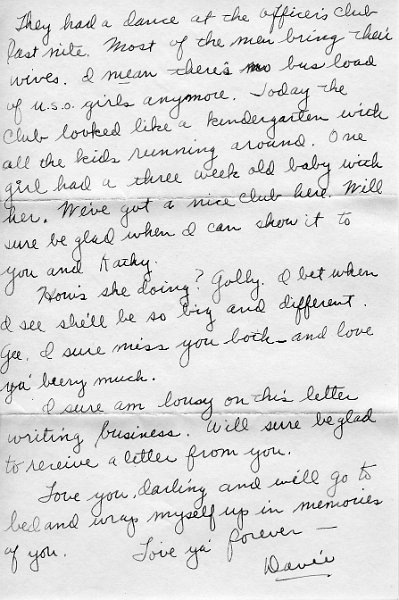 They had a dance at the officer's Club
last nite. Most of the men bring their
wives. I mean there's no bus load
of U.S.O. girls anymore. Today the
Club looked like a kindergarten with
all the kids running around. One
girl had a three week old baby with
her. We've got a nice club here. Will
sure be glad when I can show it to
you and Kathy.
How's she doing? Golly. I bet when
I see she'll be so big and different.
Gee, I sure miss you both - and love
ya' beery much.
I sure am lousy on this letter
writing business. Will sure be glad
to receive a letter from you.
Love you, darling and will go to
bed and wrap myself up in memories
of you. Love ya' forever —
Davie